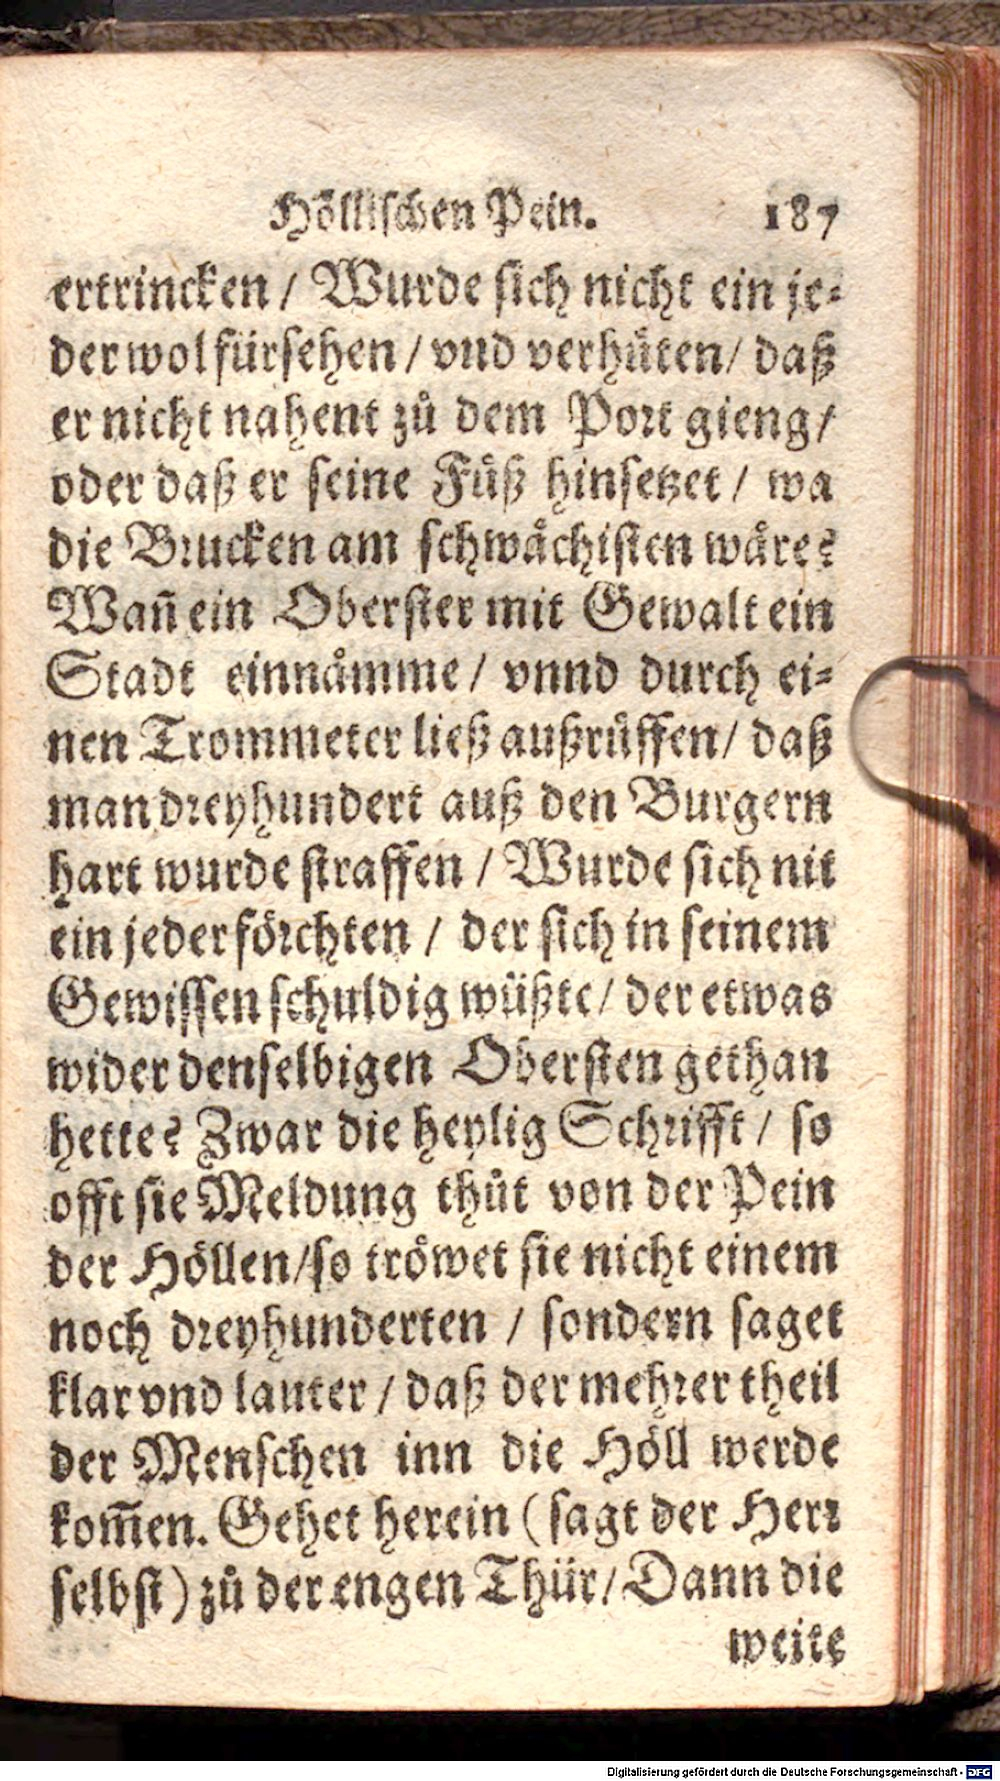 Höllischen Pein. 187
ertrincken / Wurde sich nicht ein je-
der wol fürsehen / vnd verhüten / daß
er nicht nahent zů dem Port gieng /
oder daß er seine Füß hinsetzet / wa
die Brucken am schwächisten wäre?
Wañ ein Oberster mit Gewalt ein
Stadt einnämme / vnnd durch ei-
nen Trommeter ließ außrůffen / daß
man dreyhundert auß den Burgern
hart wurde straffen / Wurde sich nit
ein jeder förchten / der sich in seinem
Gewissen schuldig wüßte / der etwas
wider denselbigen Obersten gethan
hette? Zwar die heylig Schrifft / so
offt sie Meldung thůt von der Pein
der Höllen / so tröwet sie nicht einem
noch dreyhunderten / sondern saget
klar vnd lauter / daß der mehrer theil
der Menschen inn die Höll werde
kom̃en. Gehet herein (sagt der Herr
selbst) zů der engen Thür / Dann die
weite
Digitalisierung gefördert durch die Deutsche Forschungsgemeinschaft - DFG